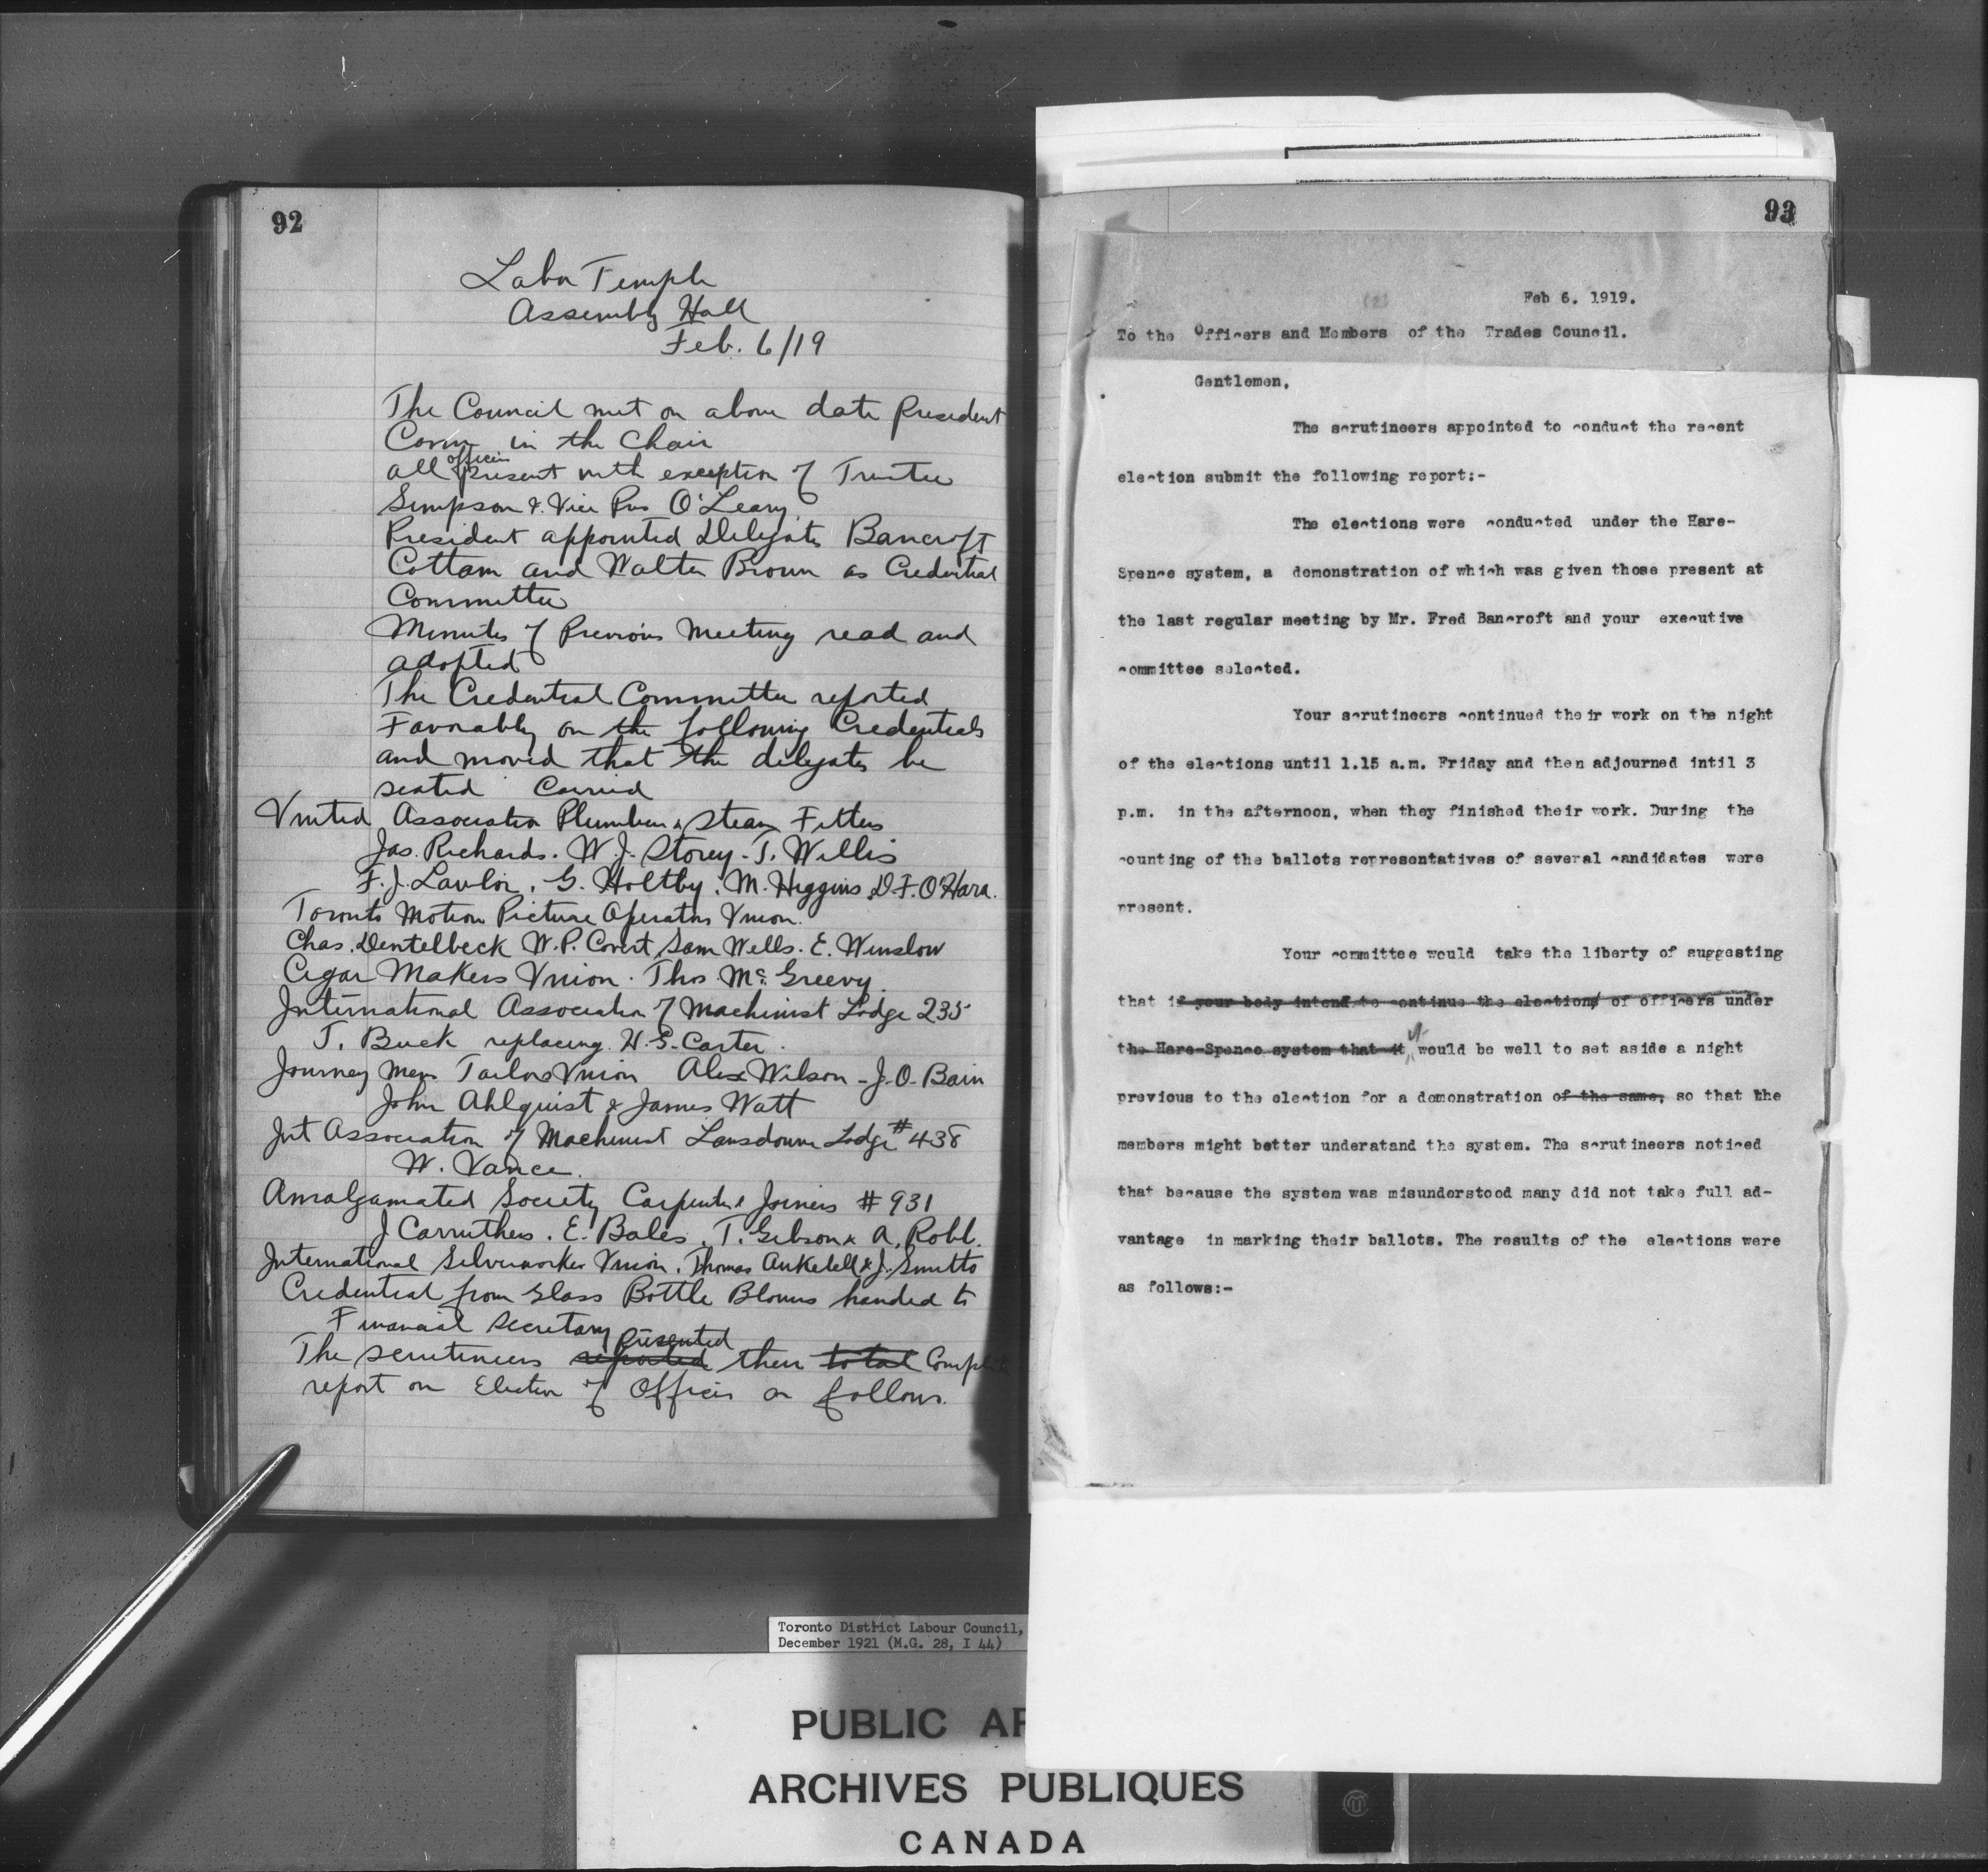 92
Labor Temple
Assembly Hall
Feb. 6/19
The Council met on above date President
in the Chair
all officers present with exception of Trustee
Simpson & Vice Pres O'Leary.
President appointed Delegates Bancroft
Cottam and Walter Brown as Credential
Committee
Minutes of Previous Meeting read and
adopted
The Credential Committee reported
Favorably on the following Credentials
and moved that the delegates be
seated Carried
United Association Plumbers & Steam Fitters
Jas. Richards. W. J. Storey - T. Willis
F. J. Lawlor, G. Holtby. M. Higgins, D. F. O'Hara.
Toronto Motion Picture Operators Union.
Chas. Dentelbeck W. P. Covert, Sam Wells. E. Winslow
Cigar Makers Union. Thos. McGreevy.
International Association of Machinist Lodge 235
T. Buck replacing H. S. Carter.
Journey Men Tailors Union Alex Wilson - J. O. Bain
John Ahlquist & James Watt
Int Association of Machinist Lansdowne Lodge #438
W. Vance.
Amalgamated Society Carpenters & Joiners #931
J Carruthers. E. Bales. T. Gibson & A. Robb.
International Silverworkers Union. Thomas Anketell & J. Smitts
Credential from Glass Bottle Blowers handed to
Financial Secretary
The scrutineers reported presented their total Complete
report on Election of Officers as follows.
93
Feb 6. 1919.
To the Officers and Members of the Trades Council.
Gentlemen,
The scrutineers appointed to conduct the recent
election submit the following report:-
The elections were conducted under the Hare-
Spence system, a demonstration of which was given those present at
the last regular meeting by Mr. Fred Bancroft and your executive
committee selected.
Your scrutineers continued their work on the night
of the elections until 1.15 a.m. Friday and then adjourned intil 3
p.m. in the afternoon, when they finished their work. During the
counting of the ballots representatives of several candidates were
present.
Your committee would take the liberty of suggesting
that if your body intend to continue the elections of officers under
the Hare-Spence system that it it would be well to set aside a night
previous to the election for a demonstration of the same, so that the
members might better underatand the system. The scrutineers noticed
that because the system was misunderstood many did not take full ad-
vantage in marking their ballots. The results of the elections were
as follows:-
Toronto District Labour Council,
December 1921 (M.G. 28, I 44)
PUBLIC AR
ARCHIVES PUBLIQUES
CANADA